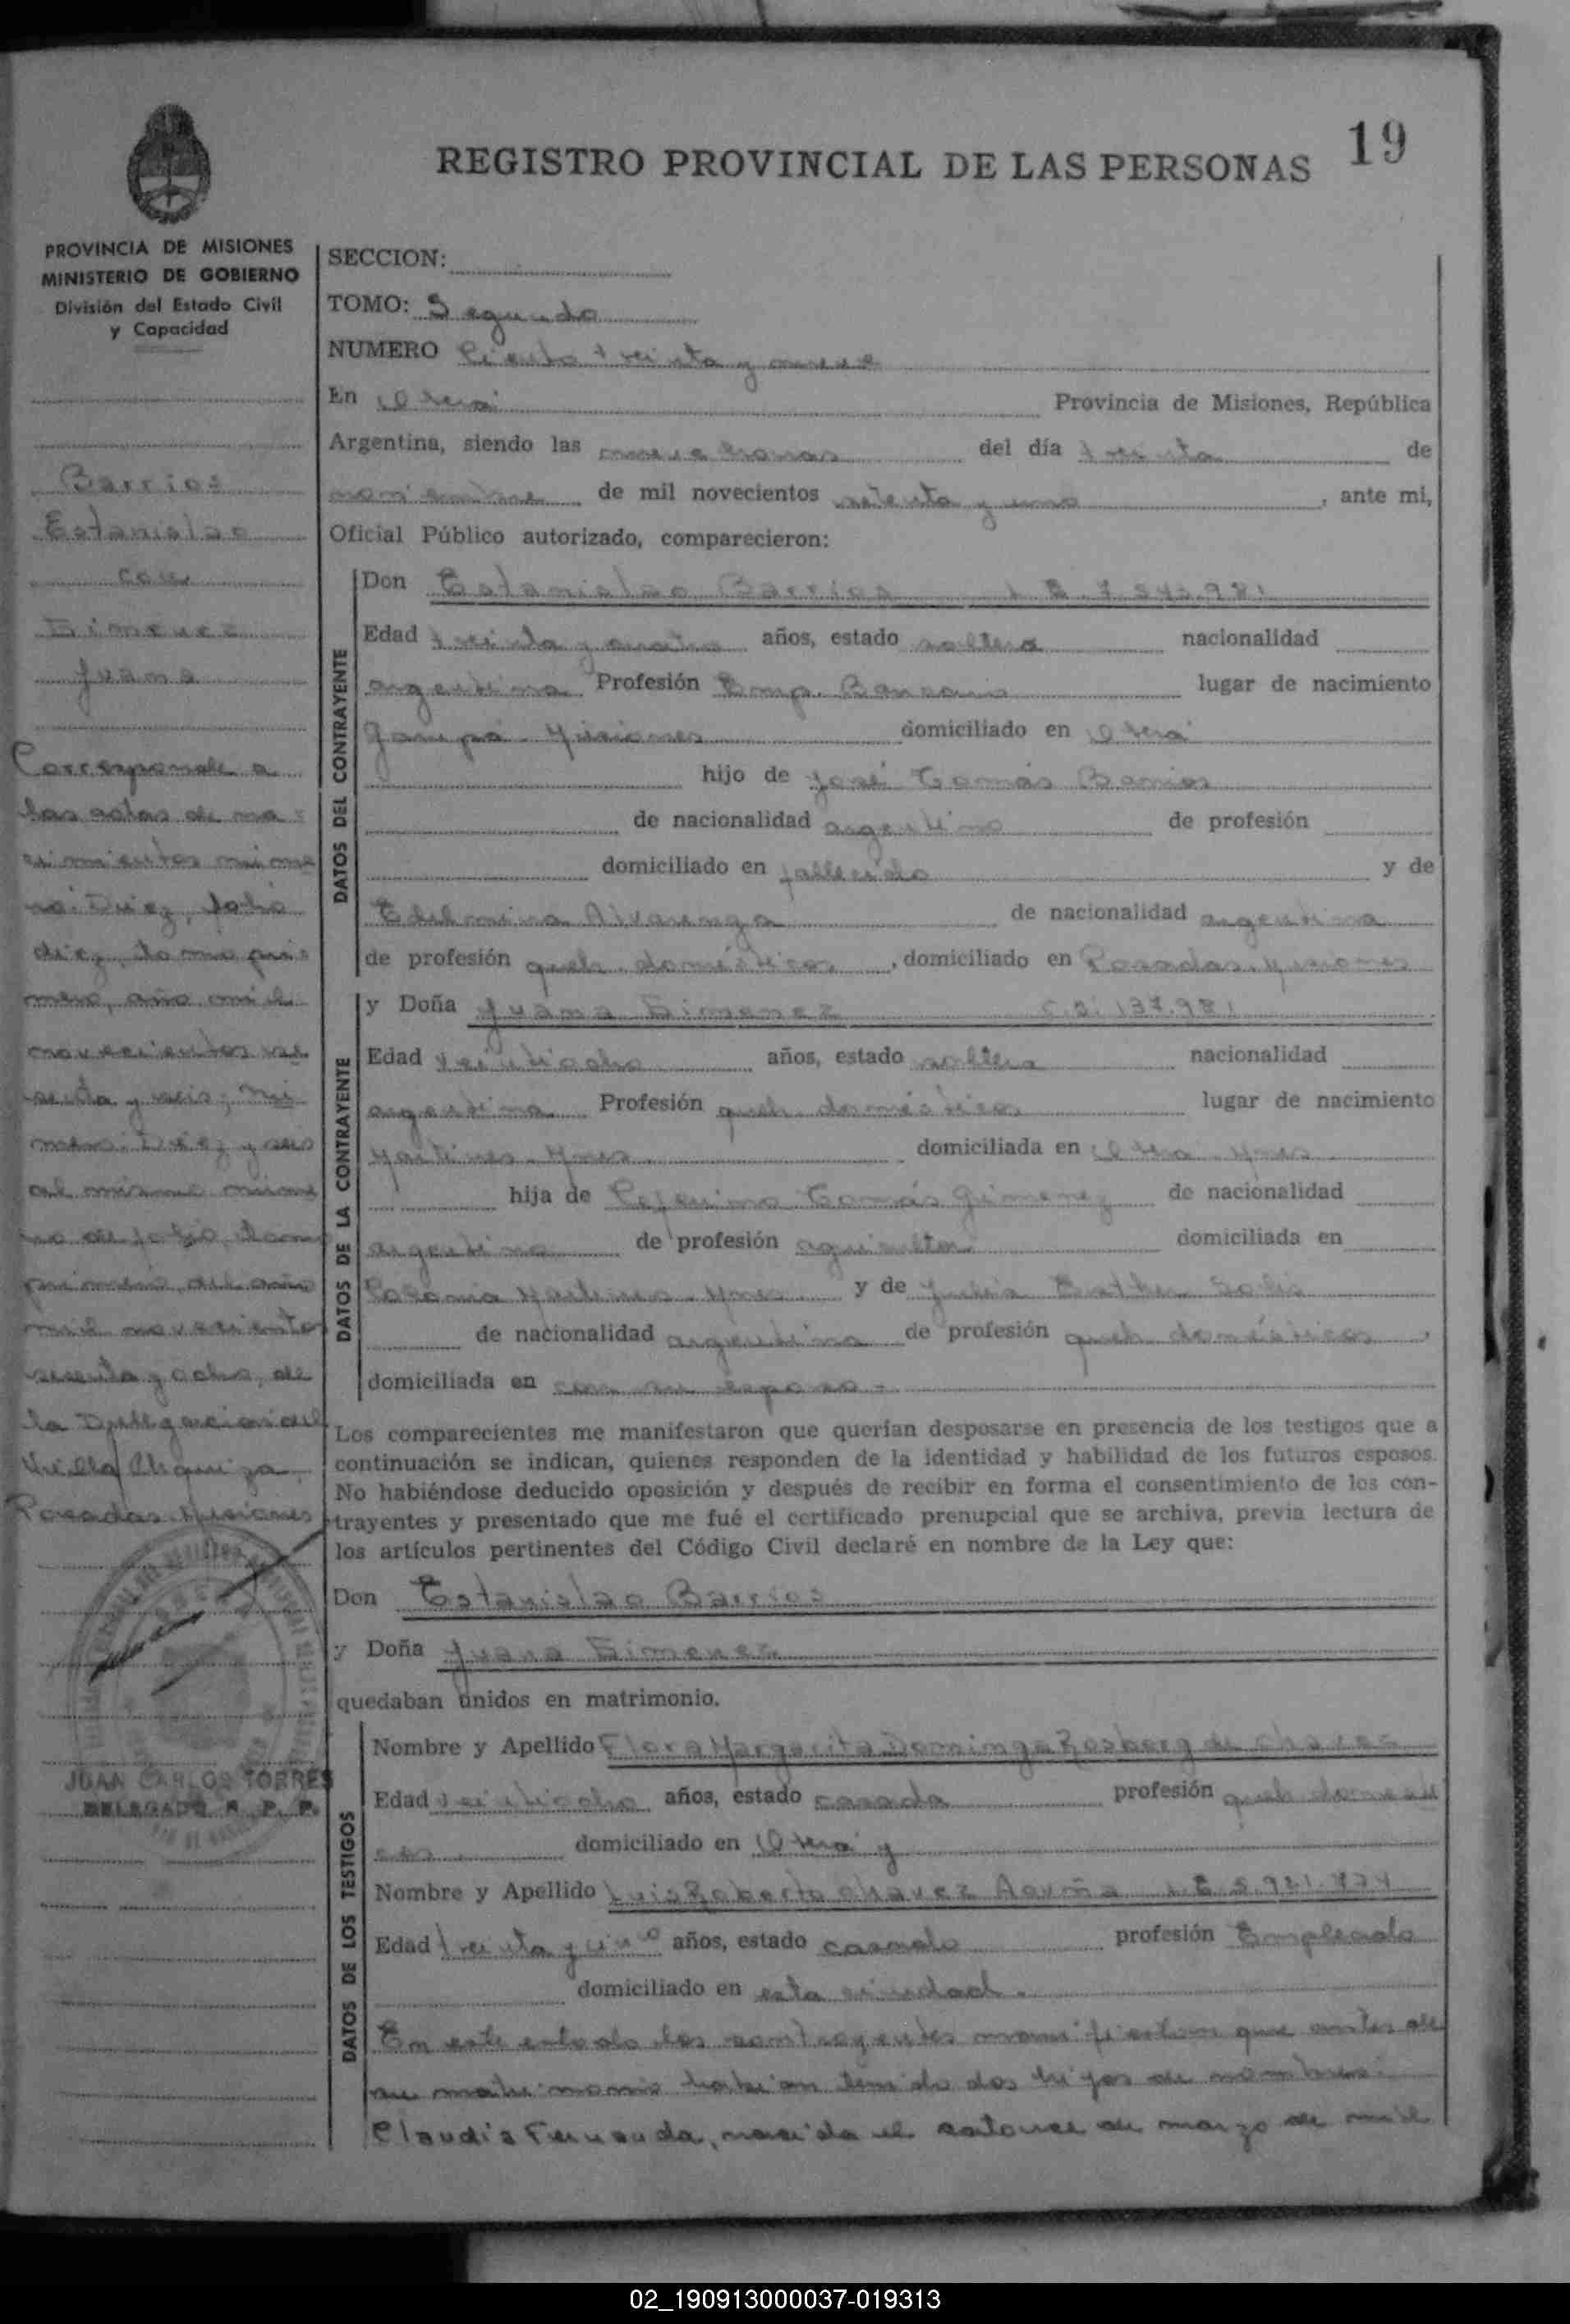 19
REGISTRO PROVINCIAL DE LAS PERSONAS
PROVINCIA DE MISIONES
MINISTERIO DE GOBIERNO
División del Estado Civil
y Capacidad
Barrios
Estanislao
con
Gimenez
Juana
Corresponde a
las actas de na-
cimientos núme
ro: Diez, folio
diez, tomo pri-
mero, año mil
novecientos se
senta y seis; Nú
mero: Diez y seis
al mismo núme
ro de folio, tomo
primero, del año
mil novecientos
sesenta y ocho, de
la Delegación del
Villa Urquiza,
Posadas. Misiones
JUAN CARLOS TORRES
DELEGADO R. P. P.
SECCION:
TOMO: Segundo
NUMERO Ciento treinta y nueve
En Oberá Provincia de Misiones, República
Argentina, siendo las nueve horas del día treinta de
noviembre de mil novecientos setenta y uno, ante mi,
Oficial Público autorizado, comparecieron:
DATOS DEL CONTRAYENTE
Don Estanislao Barrios L.E. 7.543.981
Edad treinta y cuatro años, estado soltero nacionalidad
argentina Profesión Emp. Bancario lugar de nacimiento
Garupá - Misiones domiciliado en Oberá
hijo de José Tomás Barrios
de nacionalidad argentino de profesión
domiciliado en fallecido y de
Edelmira Alvarenga de nacionalidad argentina
de profesión queh. domésticos, domiciliado en Posadas. Misiones
DATOS DE LA CONTRAYENTE
y Doña Juana Gimenez 137.981
Edad veintiocho años, estado soltera nacionalidad
argentina Profesión queh. domésticos lugar de nacimiento
Mártires - Mnes. domiciliada en Oberá - Mnes.
hija de Ceferino Tomás Gimenez de nacionalidad
argentino de profesión agricultor domiciliada en
Colonia Mártires - Mnes. y de Julia Esther Solis
de nacionalidad argentina de profesión queh. domésticos,
domiciliada en con su esposo -
Los comparecientes me manifestaron que querían desposarse en presencia de los testigos que a
continuación se indican, quienes responden de la identidad y habilidad de los futuros esposos.
No habiéndose deducido oposición y después de recibir en forma el consentimiento de los con-
trayentes y presentado que me fué el certificado prenupcial que se archiva, previa lectura de
los artículos pertinentes del Código Civil declaré en nombre de la Ley que:
Don Estanislao Barrios
y Doña Juana Gimenez
quedaban unidos en matrimonio.
DATOS DE LOS TESTIGOS
Nombre y Apellido Flora Margarita Dominga Rosberg de Chavez
Edad veintiocho años, estado casada profesión queh. domesti
cos domiciliado en Oberá y
Nombre y Apellido Luis Roberto Chavez Acuña L.E.
Edad treinta y años, estado casado profesión Empleado
domiciliado en esta ciudad.
En este estado los contrayentes manifiestan que antes de
su matrimonio habían tenido dos hijos de nombres:
Claudia Fernanda, nacida el catorce de marzo de mil
02_190913000037-019313